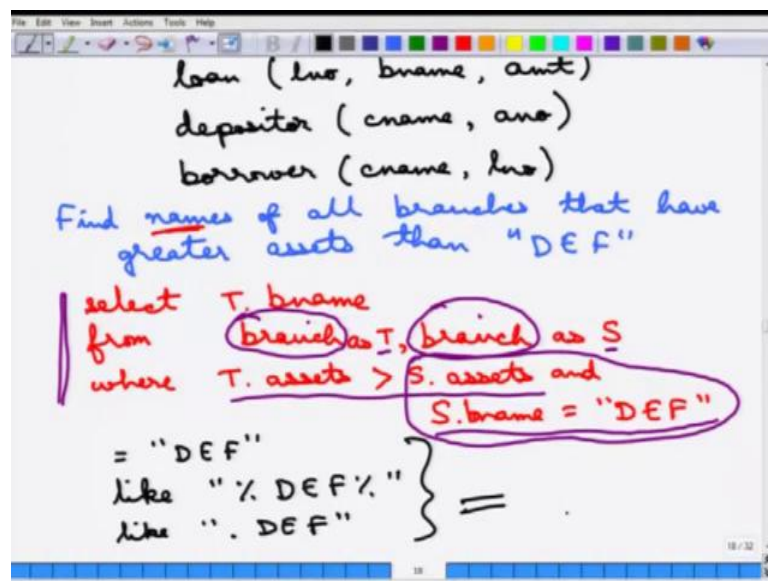 File Edit View Insert Actions Tools Help
loan ( lno, bname, amt)
depositor ( cname, ano)
borrower ( cname, lno)
Find names of all branches that have
greater assets than "DEF"
select T. bname
from branch as T, branch as S
where T. assets > S. assets and
S.bname = "DEF"
= "DEF"
like "% DEF%"
like ". DEF"
=
18 / 32
18